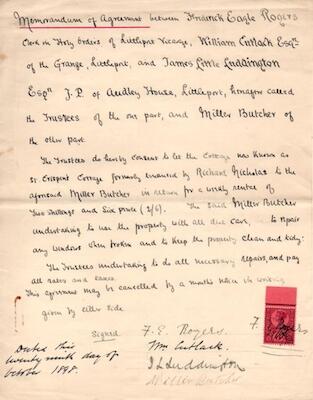 Memorandum of Agreement between Frederick Eagle Rogers
Clerk in Holy Orders of Littleport Vicarage, William Cutlack Esqre
of the Grange, Littleport, and James Little Luddington
Esqre J.P. of Audley House, Littleport, hereafter called
the Trustees of the one part, and Miller Butcher of
the other part.
The Trustees do hereby consent to let the Cottage now known as
St Crispens Cottage formerly tenanted by Richard Nicholas to the
aforesaid Miller Butcher in return for a weekly rental of
Two shillings and Six pence (2/6). The said Miller Butcher
undertaking to use the property with all due care, to repair
any windows when broken and to keep the property clean and tidy.
The Trustees undertaking to do all necessary repairs, and pay
all rates and taxes.
This agreement may be cancelled by a months notice in writing
given by either side.
Signed F. E. Rogers
Wm Cutlack
J L Luddington
Miller Butcher
Dated this
twenty ninth day of
October 1898.